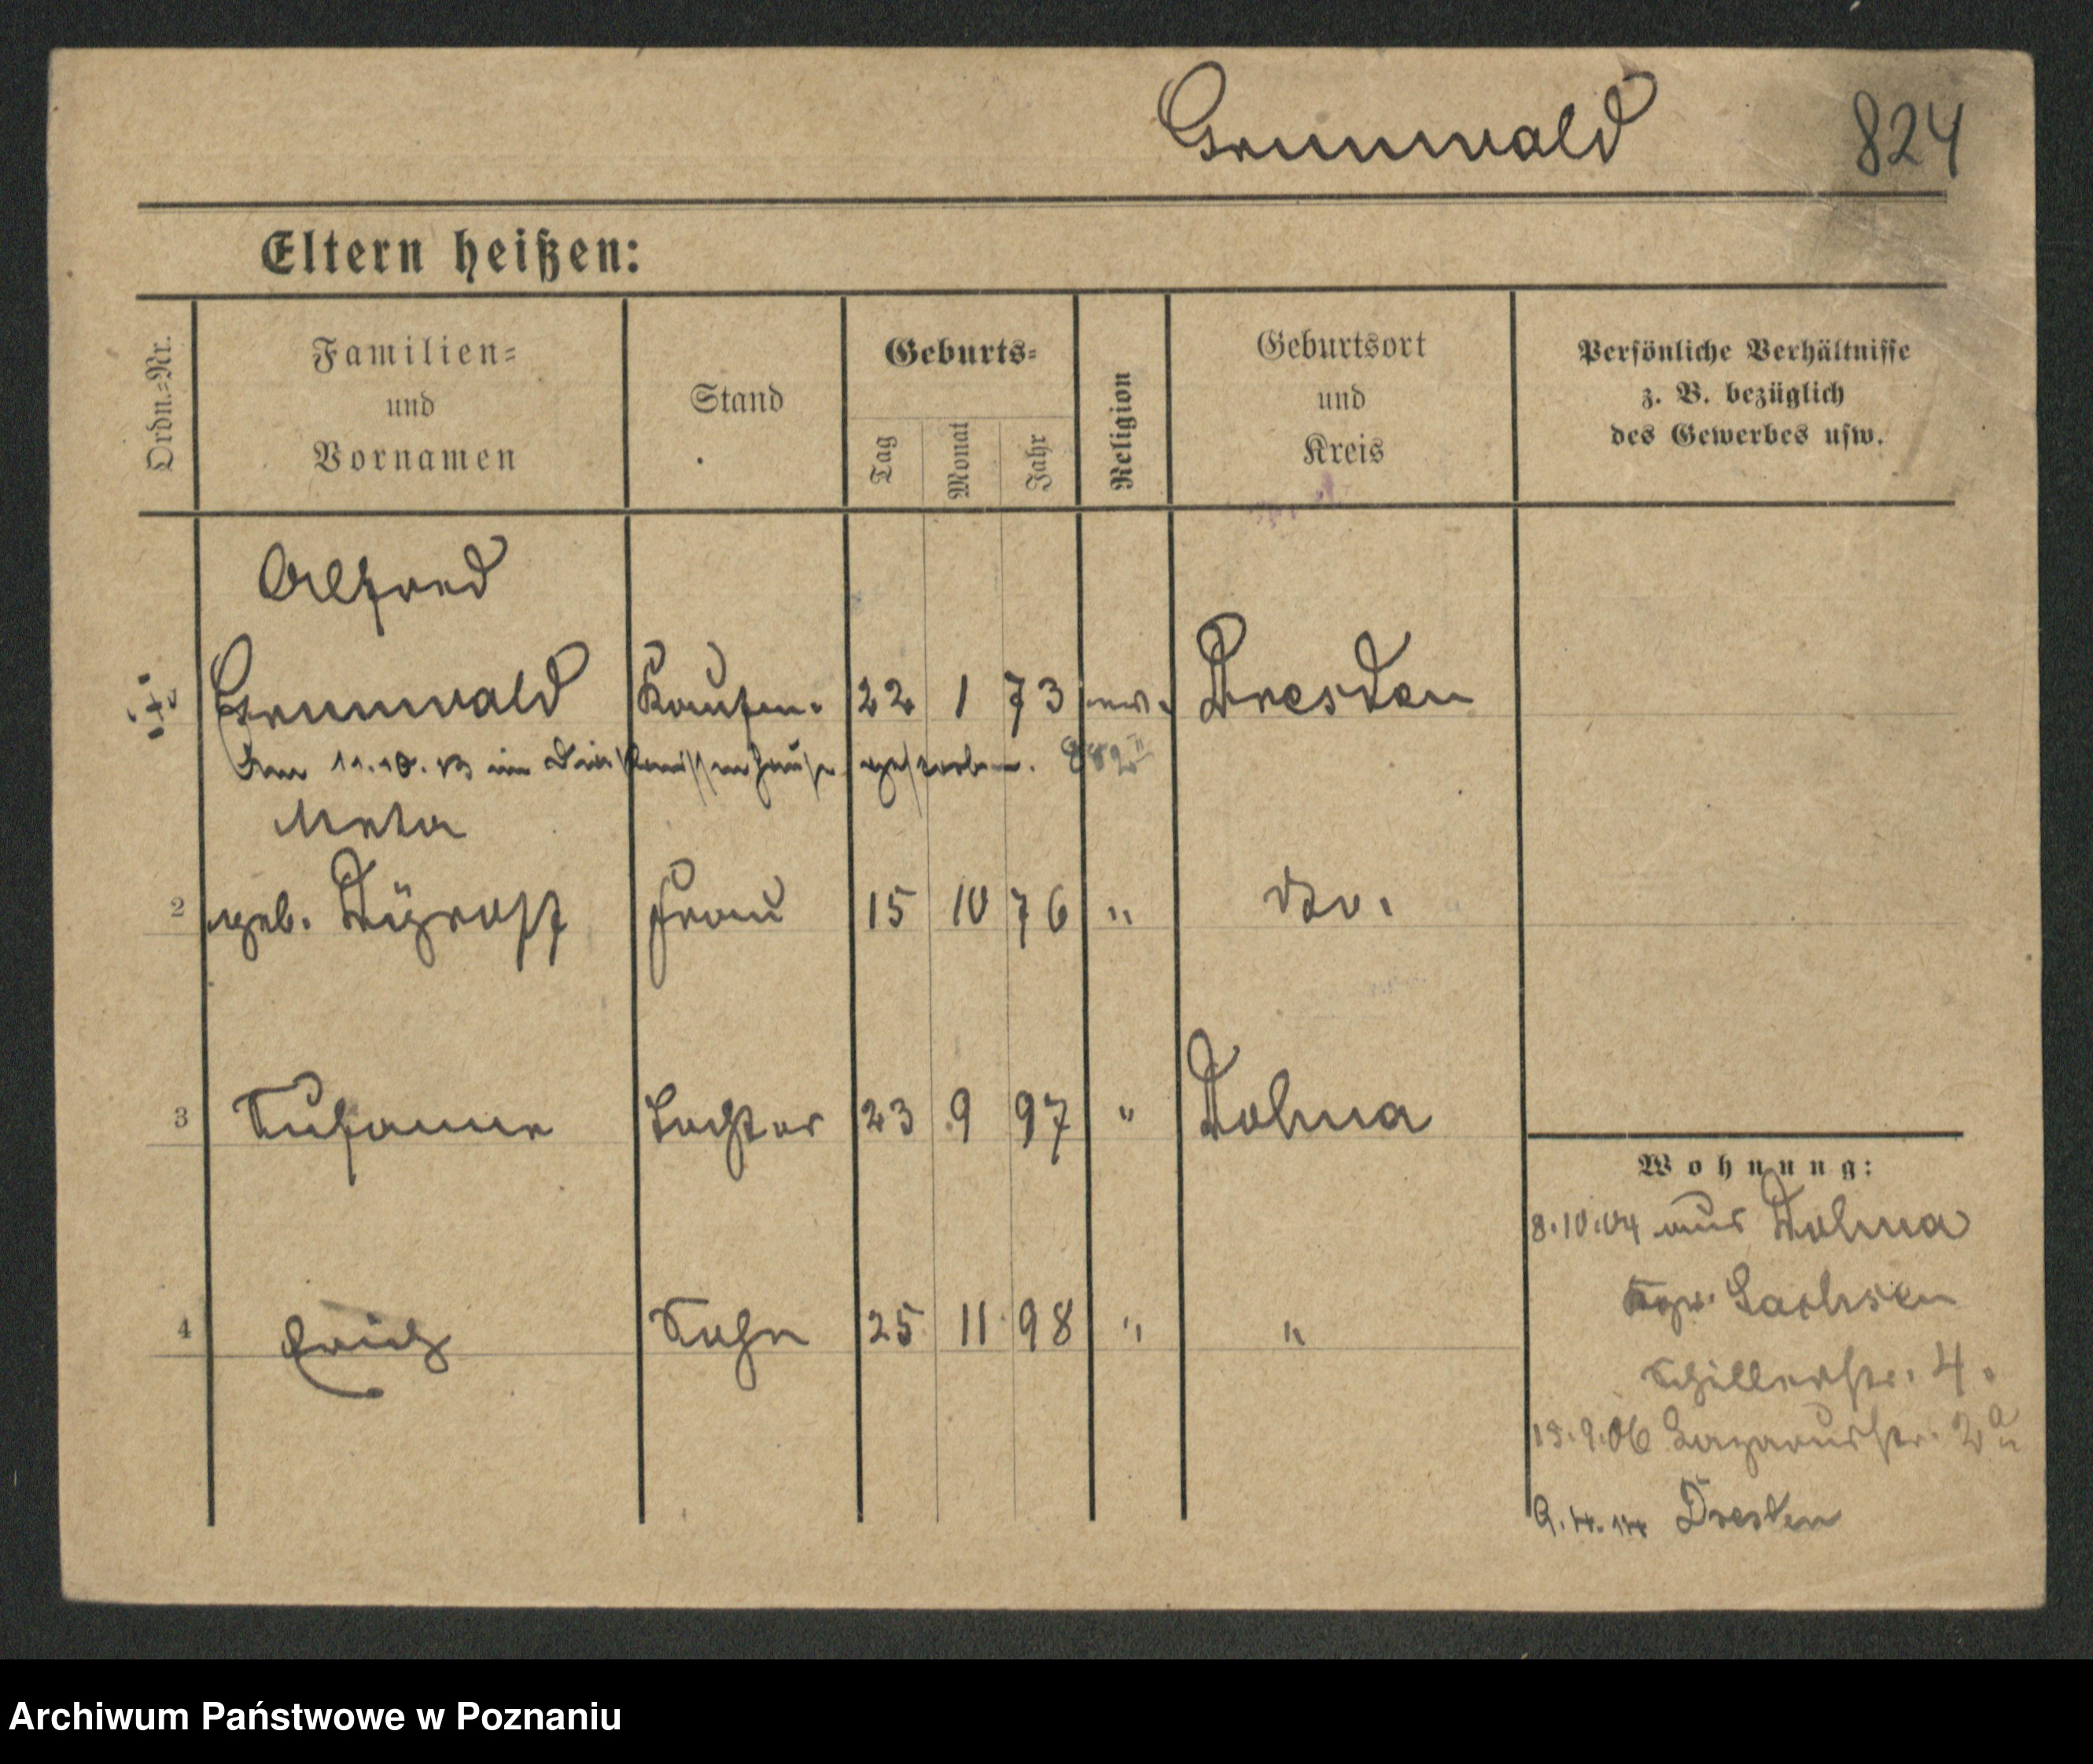 Grunwald 824
Eltern heißen:
Ordn.-Nr.
Familien-
und
Vornamen
Stand
Geburts-
Tag
Monat
Jahr
Religion
Geburtsort
und
Kreis
Persönliche Verhältnisse
z. B. bezüglich
des Gewerbes usw.
Alfred
Grunwald Kaufm. 22 1 73 ev. Dresden
Am 11.10.13 im Diakonissenhause gestorben.
Meta
2 geb. Frau 15 10 76 " do.
3 Susanne Tochter 23 9 97 " Dohna
4 Erich Sohn 25 11 98 " "
Wohnung:
8.10.04 aus Dohna
Kgr. Sachsen
Schillerstr. 4.
Lazarusstr. 2a
Dresden
Archiwum Państwowe w Poznaniu